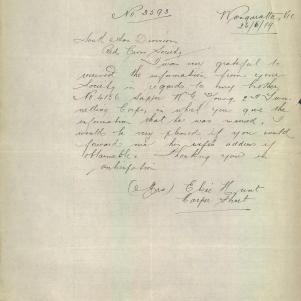 No 3593
Wangaratta, Vic
26/8/19
South Aus Division
Red Cross Society
I was very grateful to
receive the information from your
Society in regards to my brother
No 4156 Sapper W G Young 2nd Tunn-
elling Corps, in which you gave the
information that he was married. I
would be very pleased if you would
forward me her address if
obtainable. Thanking you in
anticipation
(Mrs) Elsie Hunt
Harper Street